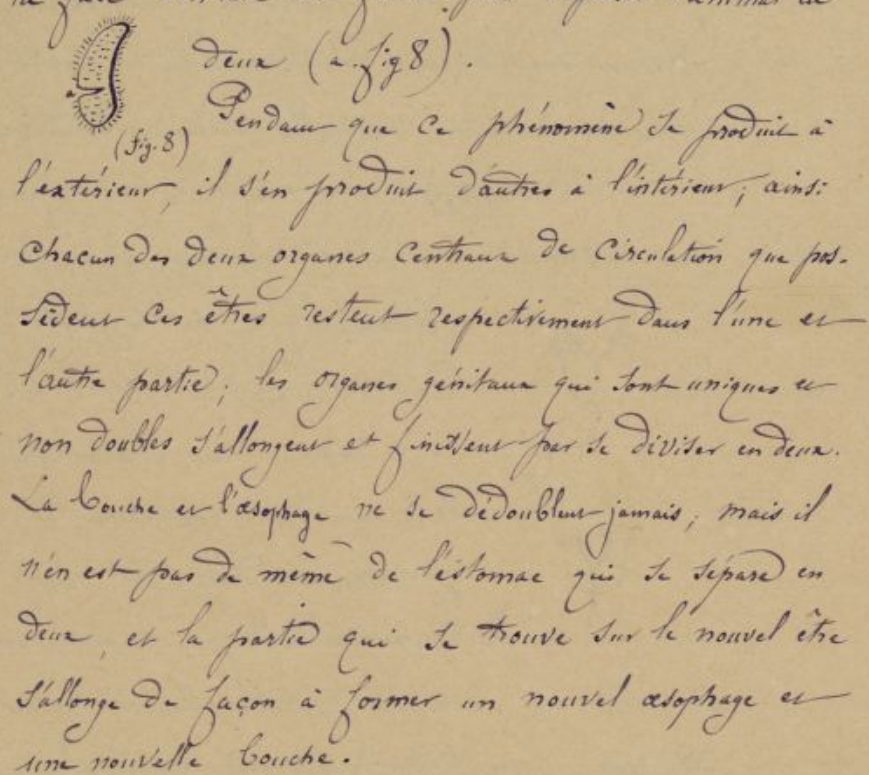 deux (a. fig 8).
a
(fig. 8)
Pendant que ce phénomène se produit à
l'extérieur, il s'en produit d'autres à l'intérieur; ainsi
chacun des deux organes centraux de circulation que pos-
sèdent ces êtres restent respectivement dans l'une et
l'autre partie; les organes génitaux qui sont uniques et
non doubles s'allongent et finissent par se diviser en deux.
La bouche et l'œsophage ne se dédoublent jamais; mais il
n'en est pas de même de l'estomac qui se sépare en
deux, et la partie qui se trouve sur le nouvel être
s'allonge de façon à former un nouvel œsophage et
une nouvelle bouche.